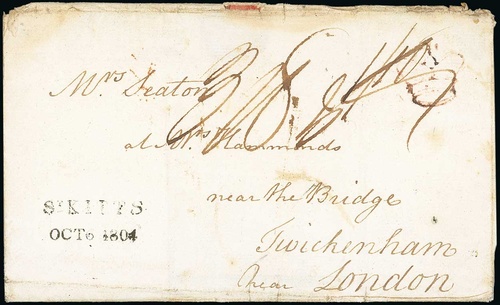 Mrs Deaton
at Mrs Hammonds
near the Bridge
Twichenham
near London
St KITTS
OCT 6 1804